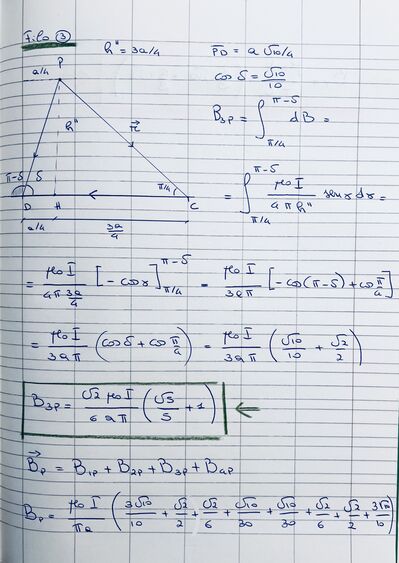 Filo ③
h" = 3a/4
PD = a √10/4
cos δ = √10/10
P
a/4
h"
r⃗
π-δ
δ
π/4
D
H
C
a/4
3a/4
B3P = ∫_{π/4}^{π-δ} dB =
= ∫_{π/4}^{π-δ} μ0 I / 4πh" sen x dx =
= μ0 I / (4π 3a/4) [-cos x]_{π/4}^{π-δ} = μ0 I / 3aπ [-cos(π-δ) + cos π/4]
= μ0 I / 3aπ (cos δ + cos π/4) = μ0 I / 3aπ (√10/10 + √2/2)
B3P = √2 μ0 I / 6aπ (√5/5 + 1) ←
B⃗P = B1P + B2P + B3P + B4P
BP = μ0 I / πa (3√10/10 + √2/2 + √2/6 + √10/30 + √10/30 + √2/6 + √2/2 + 3√10/10)